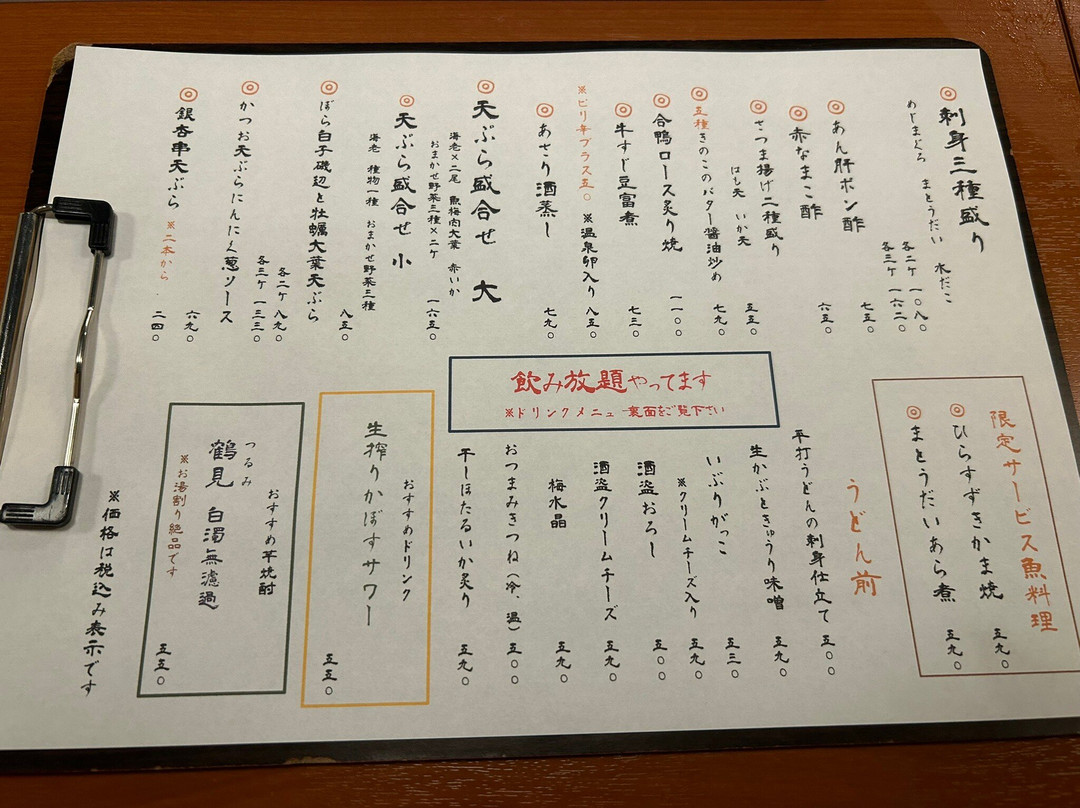 ◎刺身三種盛り
めじまぐろ まとうだい 水だこ
各二ケ 一〇八〇
各三ケ 一六二〇
◎あん肝ポン酢 七五〇
◎赤なまこ酢 六五〇
◎さつま揚げ二種盛り
はも天 いか天 五五〇
◎五種きのこのバター醤油炒め 七九〇
◎合鴨ロース炙り焼 一一〇〇
◎牛すじ豆富煮 七三〇
※ピリ辛プラス五〇 ※温泉卵入り 八五〇
◎あさり酒蒸し 七九〇
◎天ぷら盛合せ 大
海老×二尾 魚梅肉大葉 赤いか
おまかせ野菜三種×二ケ 一六五〇
◎天ぷら盛合せ 小
海老 種物一種 おまかせ野菜三種 八五〇
◎ぼら白子磯辺と牡蠣大葉天ぷら
各二ケ 八九〇
各三ケ 一三三〇
◎かつお天ぷらにんにく葱ソース 六九〇
◎銀杏串天ぷら ※二本から 二四〇
飲み放題やってます
※ドリンクメニュー裏面をご覧下さい
限定サービス魚料理
◎ひらすずきかま焼 五九〇
◎まとうだいあら煮 五九〇
うどん前
平打うどんの刺身仕立て 五〇〇
生かぶときゅうり味噌 五九〇
いぶりがっこ 五三〇
※クリームチーズ入り 五九〇
酒盗おろし 五〇〇
酒盗クリームチーズ 五九〇
梅水晶 五九〇
おつまみきつね(冷、温) 五〇〇
干しほたるいか炙り 五九〇
おすすめドリンク
生搾りかぼすサワー 五五〇
おすすめ芋焼酎
つるみ
鶴見 白濁無濾過
※お湯割り絶品です 五五〇
※価格は税込み表示です